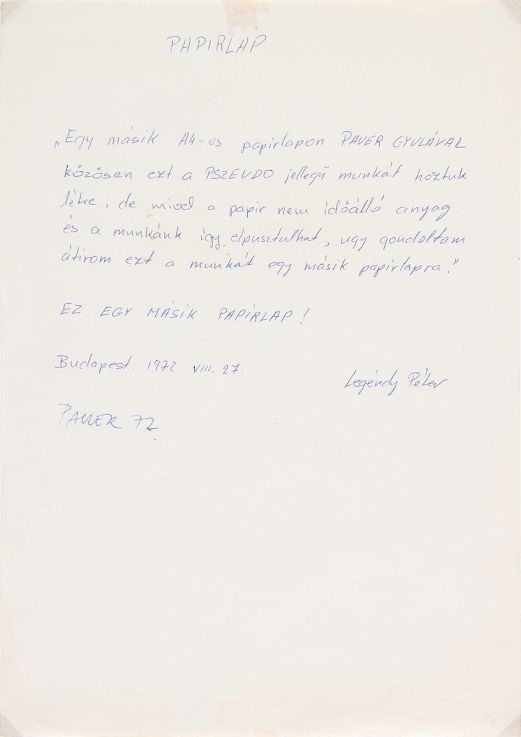 PAPIRLAP
„Egy másik A4-es papírlapon PAUER GYULÁVAL
közösen ezt a PSZEUDO jellegű munkát hoztuk
létre, de mivel a papír nem időálló anyag
és a munkánk így elpusztulhat, ugy gondoltam
átirom ezt a munkát egy másik papírlapra."
EZ EGY MÁSIK PAPÍRLAP!
Budapest. 1972 VIII. 27.
Legéndy Péter
PAUER 72